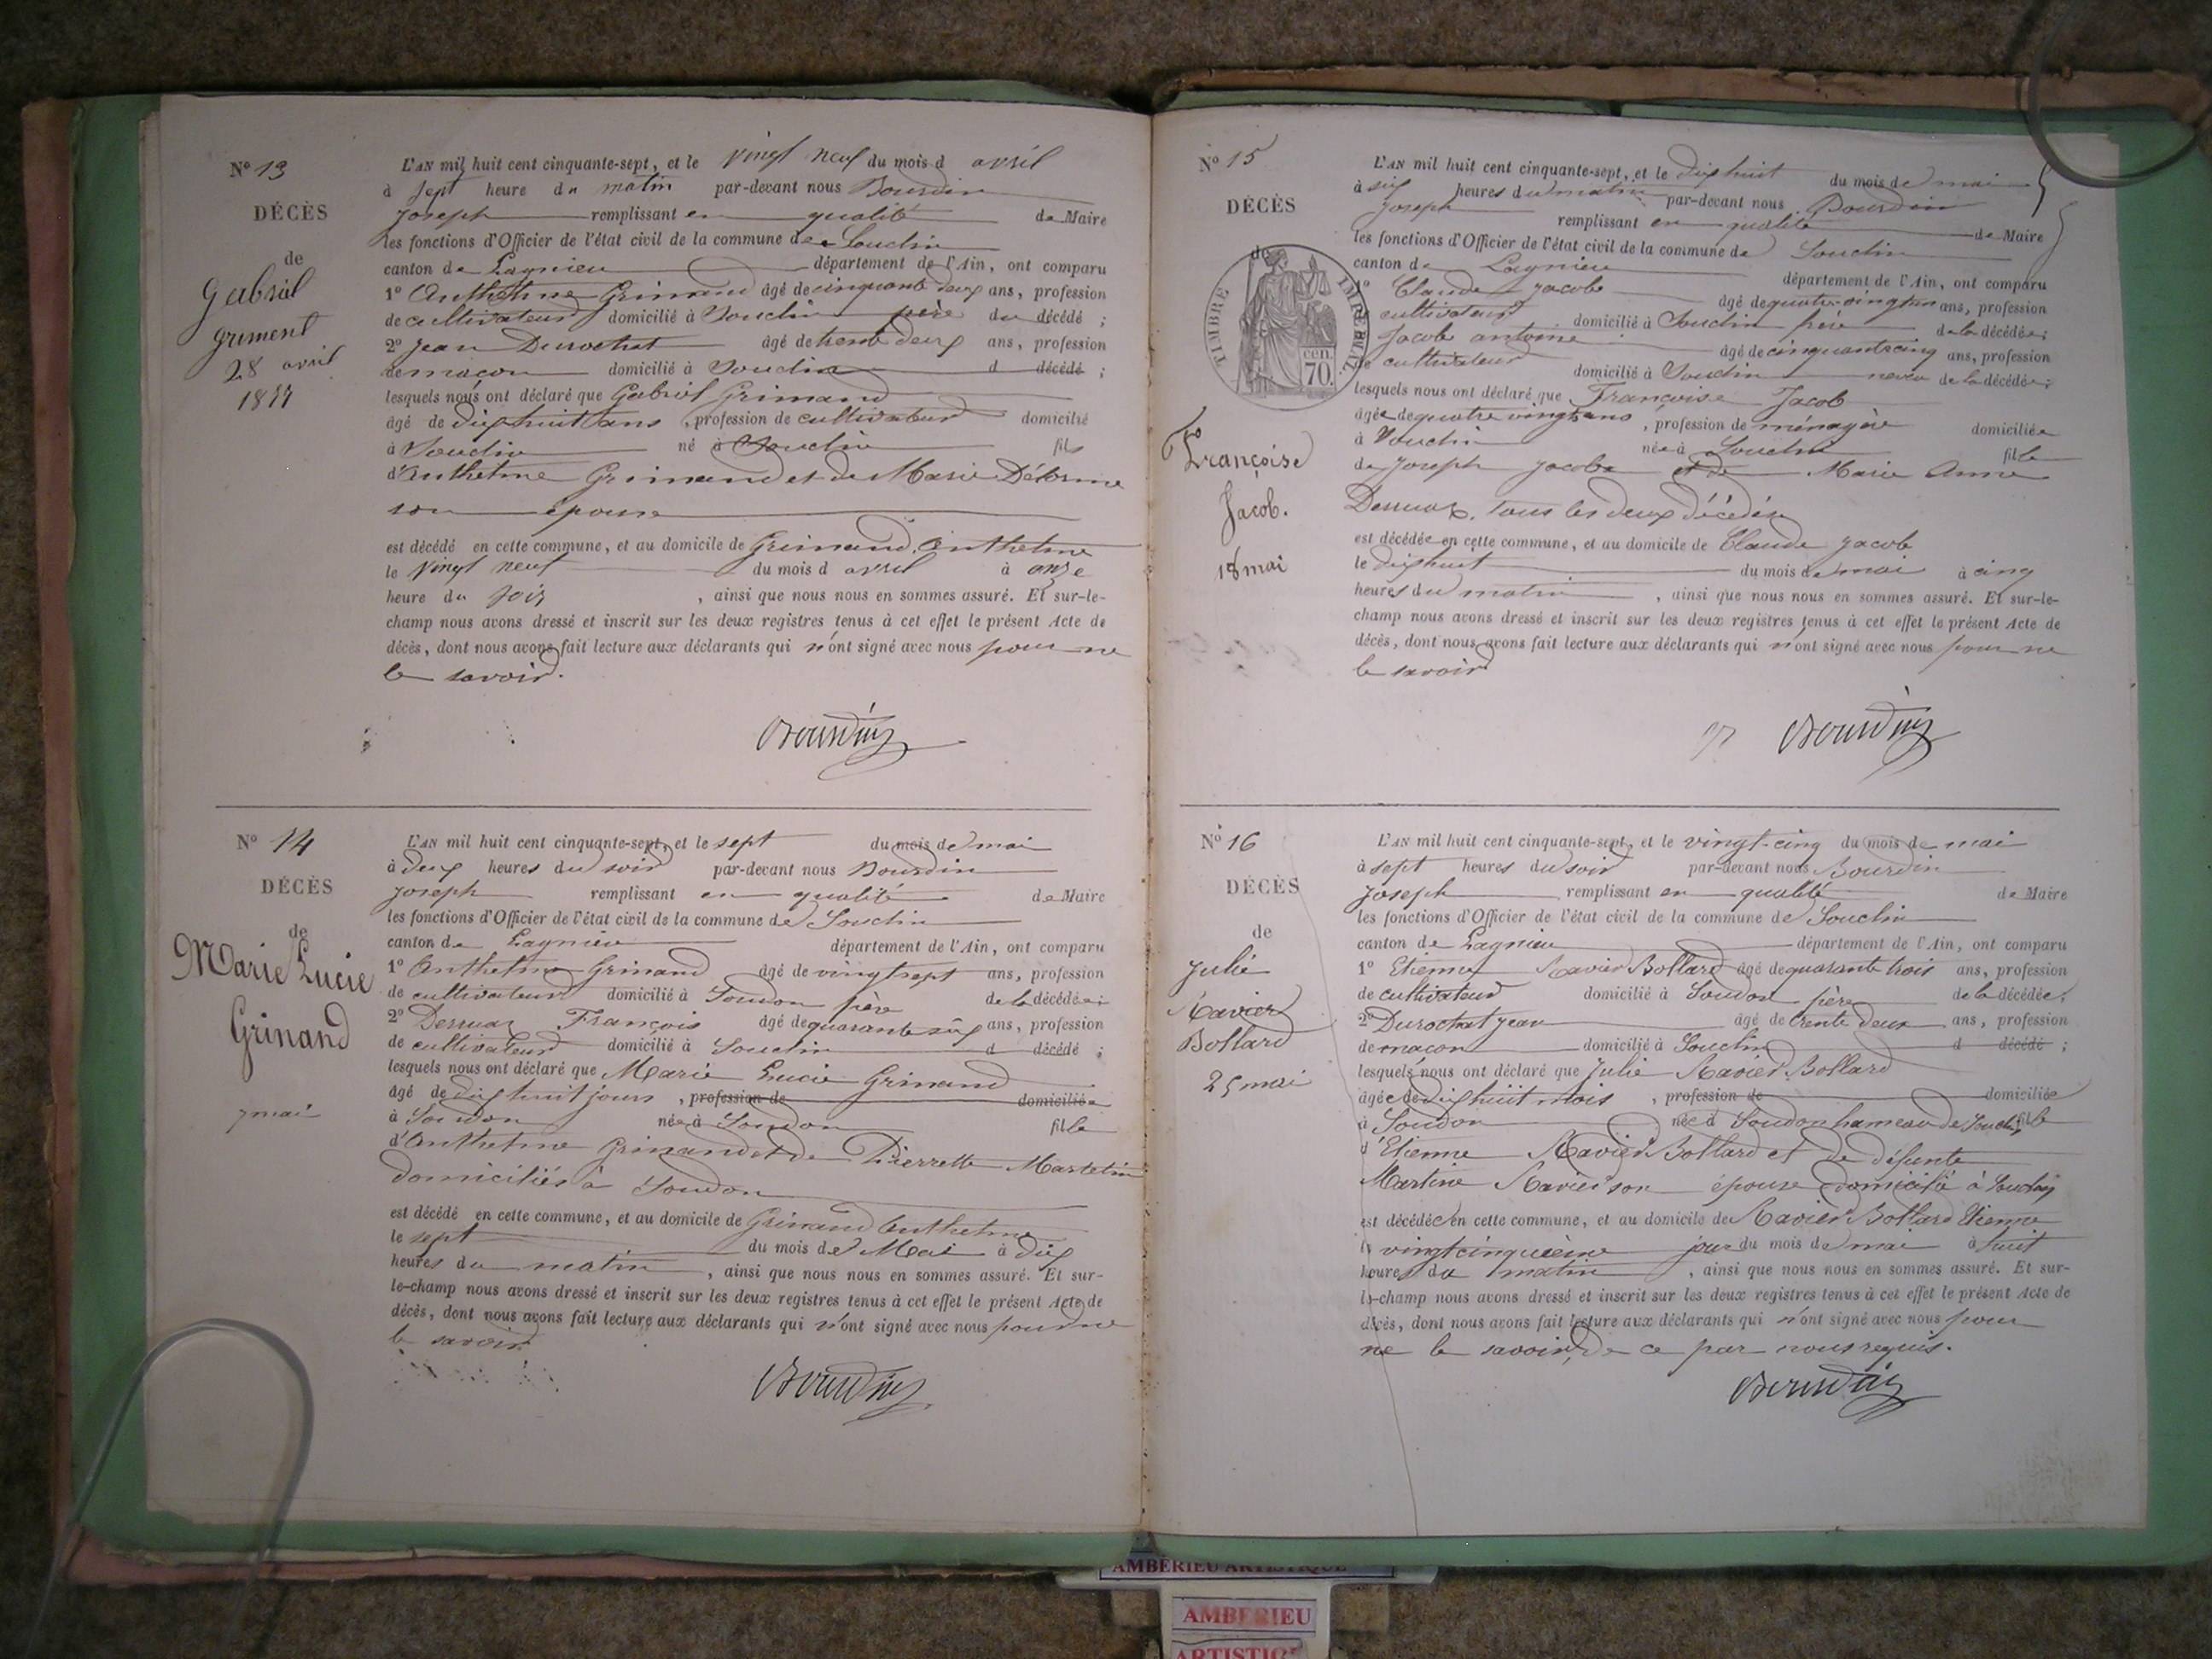 N° 13
DÉCÈS
de
Gabriel
Griment
28 avril
1857
L'AN mil huit cent cinquante-sept, et le vingt neuf du mois d avril
à sept heure du matin par-devant nous Bourdin
Joseph remplissant en qualité de Maire
les fonctions d'Officier de l'état civil de la commune de Souclin
canton de Lagnieu département de l'Ain, ont comparu
1° Anthelme Grinand âgé de cinquante deux ans, profession
de cultivateur domicilié à Souclin père du décédé ;
2° Jean Durochat âgé de trente deux ans, profession
de maçon domicilié à Souclin d décédé ;
lesquels nous ont déclaré que Gabriel Grinand
âgé de dix huit ans , profession de cultivateur domicilié
à Souclin né à Souclin fils
d'Anthelme Grinand et de Marie Délorme
son épouse
est décédé en cette commune, et au domicile de Grinand Anthelme
le vingt neuf du mois d avril à onze
heure du soir , ainsi que nous nous en sommes assuré. Et sur-le-
champ nous avons dressé et inscrit sur les deux registres tenus à cet effet le présent Acte de
décès, dont nous avons fait lecture aux déclarants qui n'ont signé avec nous pour ne
le savoir.
Bourdin
N° 14
DÉCÈS
de
Marie Lucie
Grinand
7 mai
L'AN mil huit cent cinquante-sept, et le sept du mois de mai
à deux heures du soir par-devant nous Bourdin
Joseph remplissant en qualité de Maire
les fonctions d'Officier de l'état civil de la commune de Souclin
canton de Lagnieu département de l'Ain, ont comparu
1° Anthelme Grinand âgé de vingt sept ans, profession
de cultivateur domicilié à Soudon père de la décédée ;
2° Derruaz François âgé de quarante six ans, profession
de cultivateur domicilié à Souclin d décédé ;
lesquels nous ont déclaré que Marie Lucie Grinand
âgé de dix huit jours , profession de domiciliée
à Soudon née à Soudon fille
d'Anthelme Grinand et de Pierrette Martelin
domiciliés à Soudon
est décédé en cette commune, et au domicile de Grinand Anthelme
le sept du mois de Mai à dix
heures du matin , ainsi que nous nous en sommes assuré. Et sur-
le-champ nous avons dressé et inscrit sur les deux registres tenus à cet effet le présent Acte de
décès, dont nous avons fait lecture aux déclarants qui n'ont signé avec nous pour ne
le savoir
Bourdin
N° 15
DÉCÈS
de
TIMBRE IMPÉRIAL
70 cen.
Françoise
Jacob.
18 mai
L'AN mil huit cent cinquante-sept, et le dix huit du mois de mai
à six heures du matin par-devant nous Bourdin
Joseph remplissant en qualité de Maire
les fonctions d'Officier de l'état civil de la commune de Souclin
canton de Lagnieu département de l'Ain, ont comparu
1° Claude Jacob âgé de quatre vingt ans, profession
cultivateur domicilié à Souclin frère de la décédée ;
Jacob antoine âgé de cinquante cinq ans, profession
de cultivateur domicilié à Souclin neveu de la décédée ;
lesquels nous ont déclaré que Françoise Jacob
âgée de quatre vingt ans , profession de ménagère domiciliée
à Souclin née à Souclin fille
de Joseph Jacob et de Marie Anne
Derruaz, tous les deux décédés
est décédée en cette commune, et au domicile de Claude Jacob
le dix huit du mois de mai à cinq
heures du matin , ainsi que nous nous en sommes assuré. Et sur-le-
champ nous avons dressé et inscrit sur les deux registres tenus à cet effet le présent Acte de
décès, dont nous avons fait lecture aux déclarants qui n'ont signé avec nous pour ne
le savoir
Bourdin
N° 16
DÉCÈS
de
Julie
Ravier
Bollard
25 mai
L'AN mil huit cent cinquante-sept, et le vingt-cinq du mois de mai
à sept heures du soir par-devant nous Bourdin
Joseph remplissant en qualité de Maire
les fonctions d'Officier de l'état civil de la commune de Souclin
canton de Lagnieu département de l'Ain, ont comparu
1° Etienne Ravier Bollard âgé de quarante trois ans, profession
de cultivateur domicilié à Soudon père de la décédée ;
2° Durochat Jean âgé de trente deux ans, profession
de maçon domicilié à Souclin d décédé ;
lesquels nous ont déclaré que Julie Ravier Bollard
âgée de dix huit mois , profession de domiciliée
à Soudon née à Soudon hameau de Souclin fille
d'Etienne Ravier Bollard et de défunte
Martine Ravier son épouse domicilié à Souclin
est décédée en cette commune, et au domicile de Ravier Bollard Etienne
le vingt cinquième jour du mois de mai à huit
heures du matin , ainsi que nous nous en sommes assuré. Et sur-
le-champ nous avons dressé et inscrit sur les deux registres tenus à cet effet le présent Acte de
décès, dont nous avons fait lecture aux déclarants qui n'ont signé avec nous pour
ne le savoir, de ce par nous requis.
Bourdin
AMBÉRIEU ARTISTIQUE
AMBERIEU
ARTISTIQ